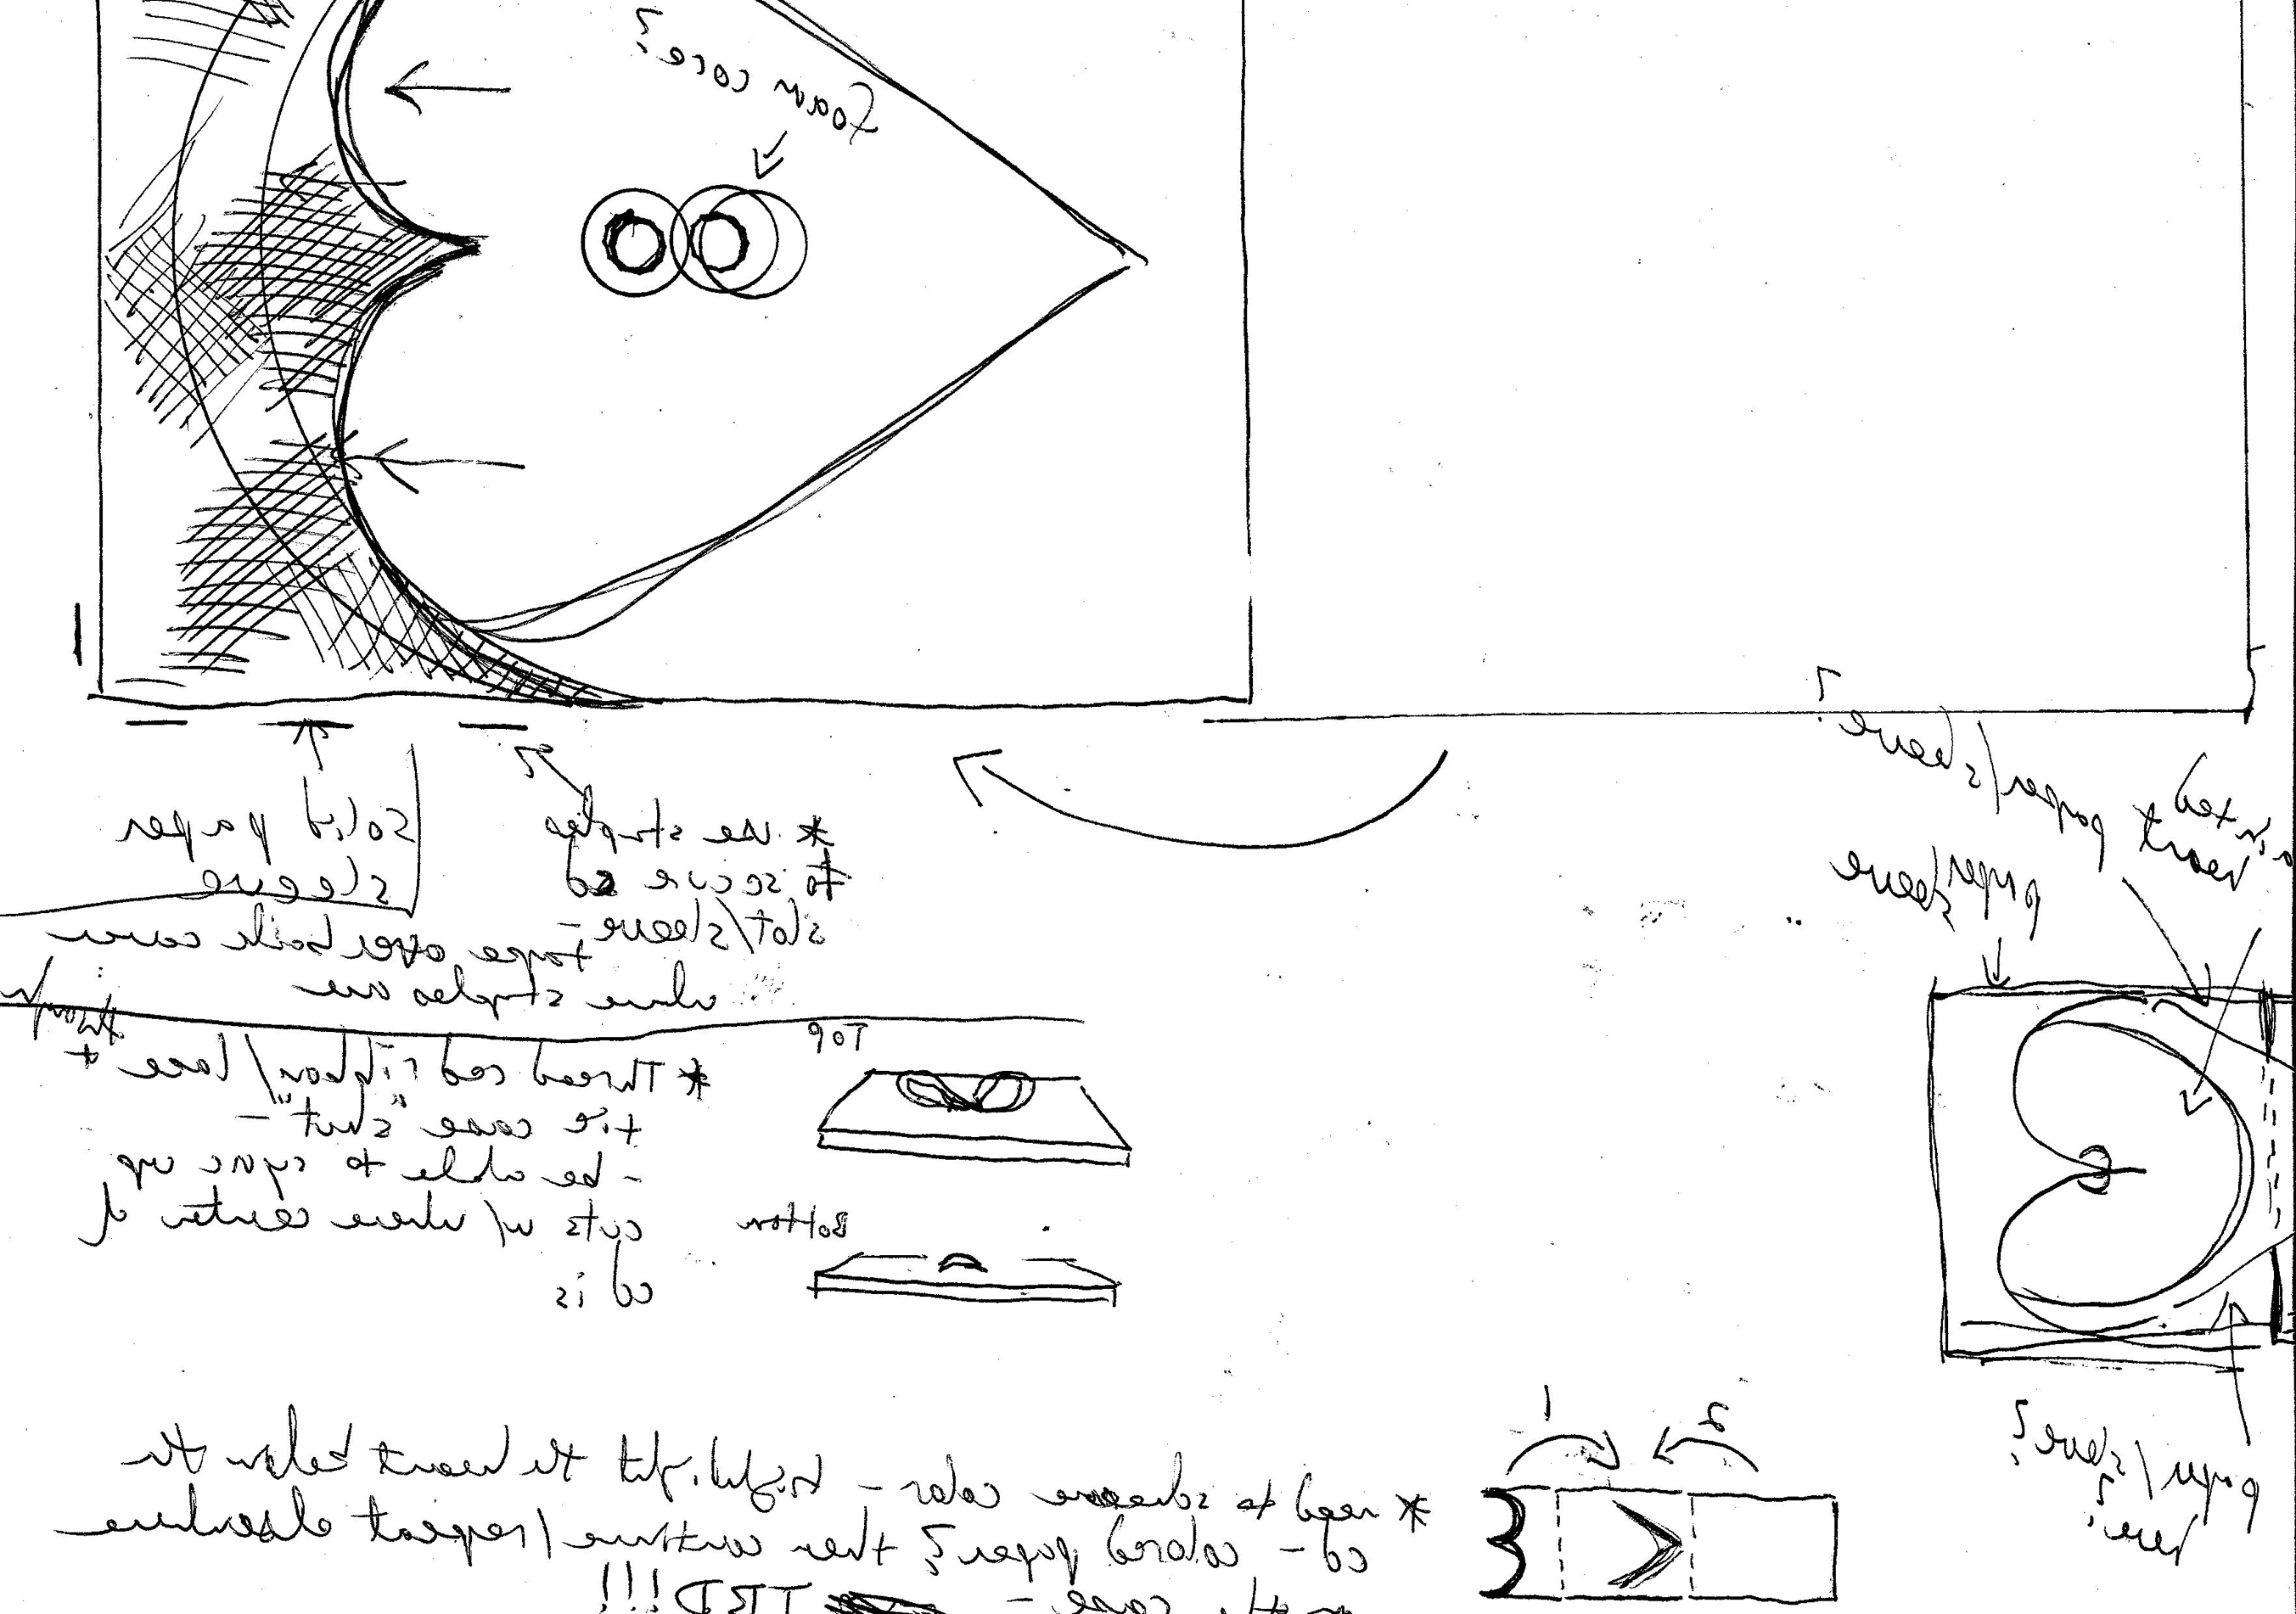 foam core?
solid paper
sleeve
* use staples
to secure cd
slot/sleeve -
tape over back cover
where staples are
* Thread red ribbon/lace +
tie case "shut" -
- be able to sync up
cuts w/ where center of
cd is
TOP
Bottom
paper/sleeve?
heart
paper
sleeve
paper/sleeve?
here?
1
2
* need to scheme color - highlight the heart below the
cd - colored paper? then continue/repeat elsewhere
case - TBD!!!